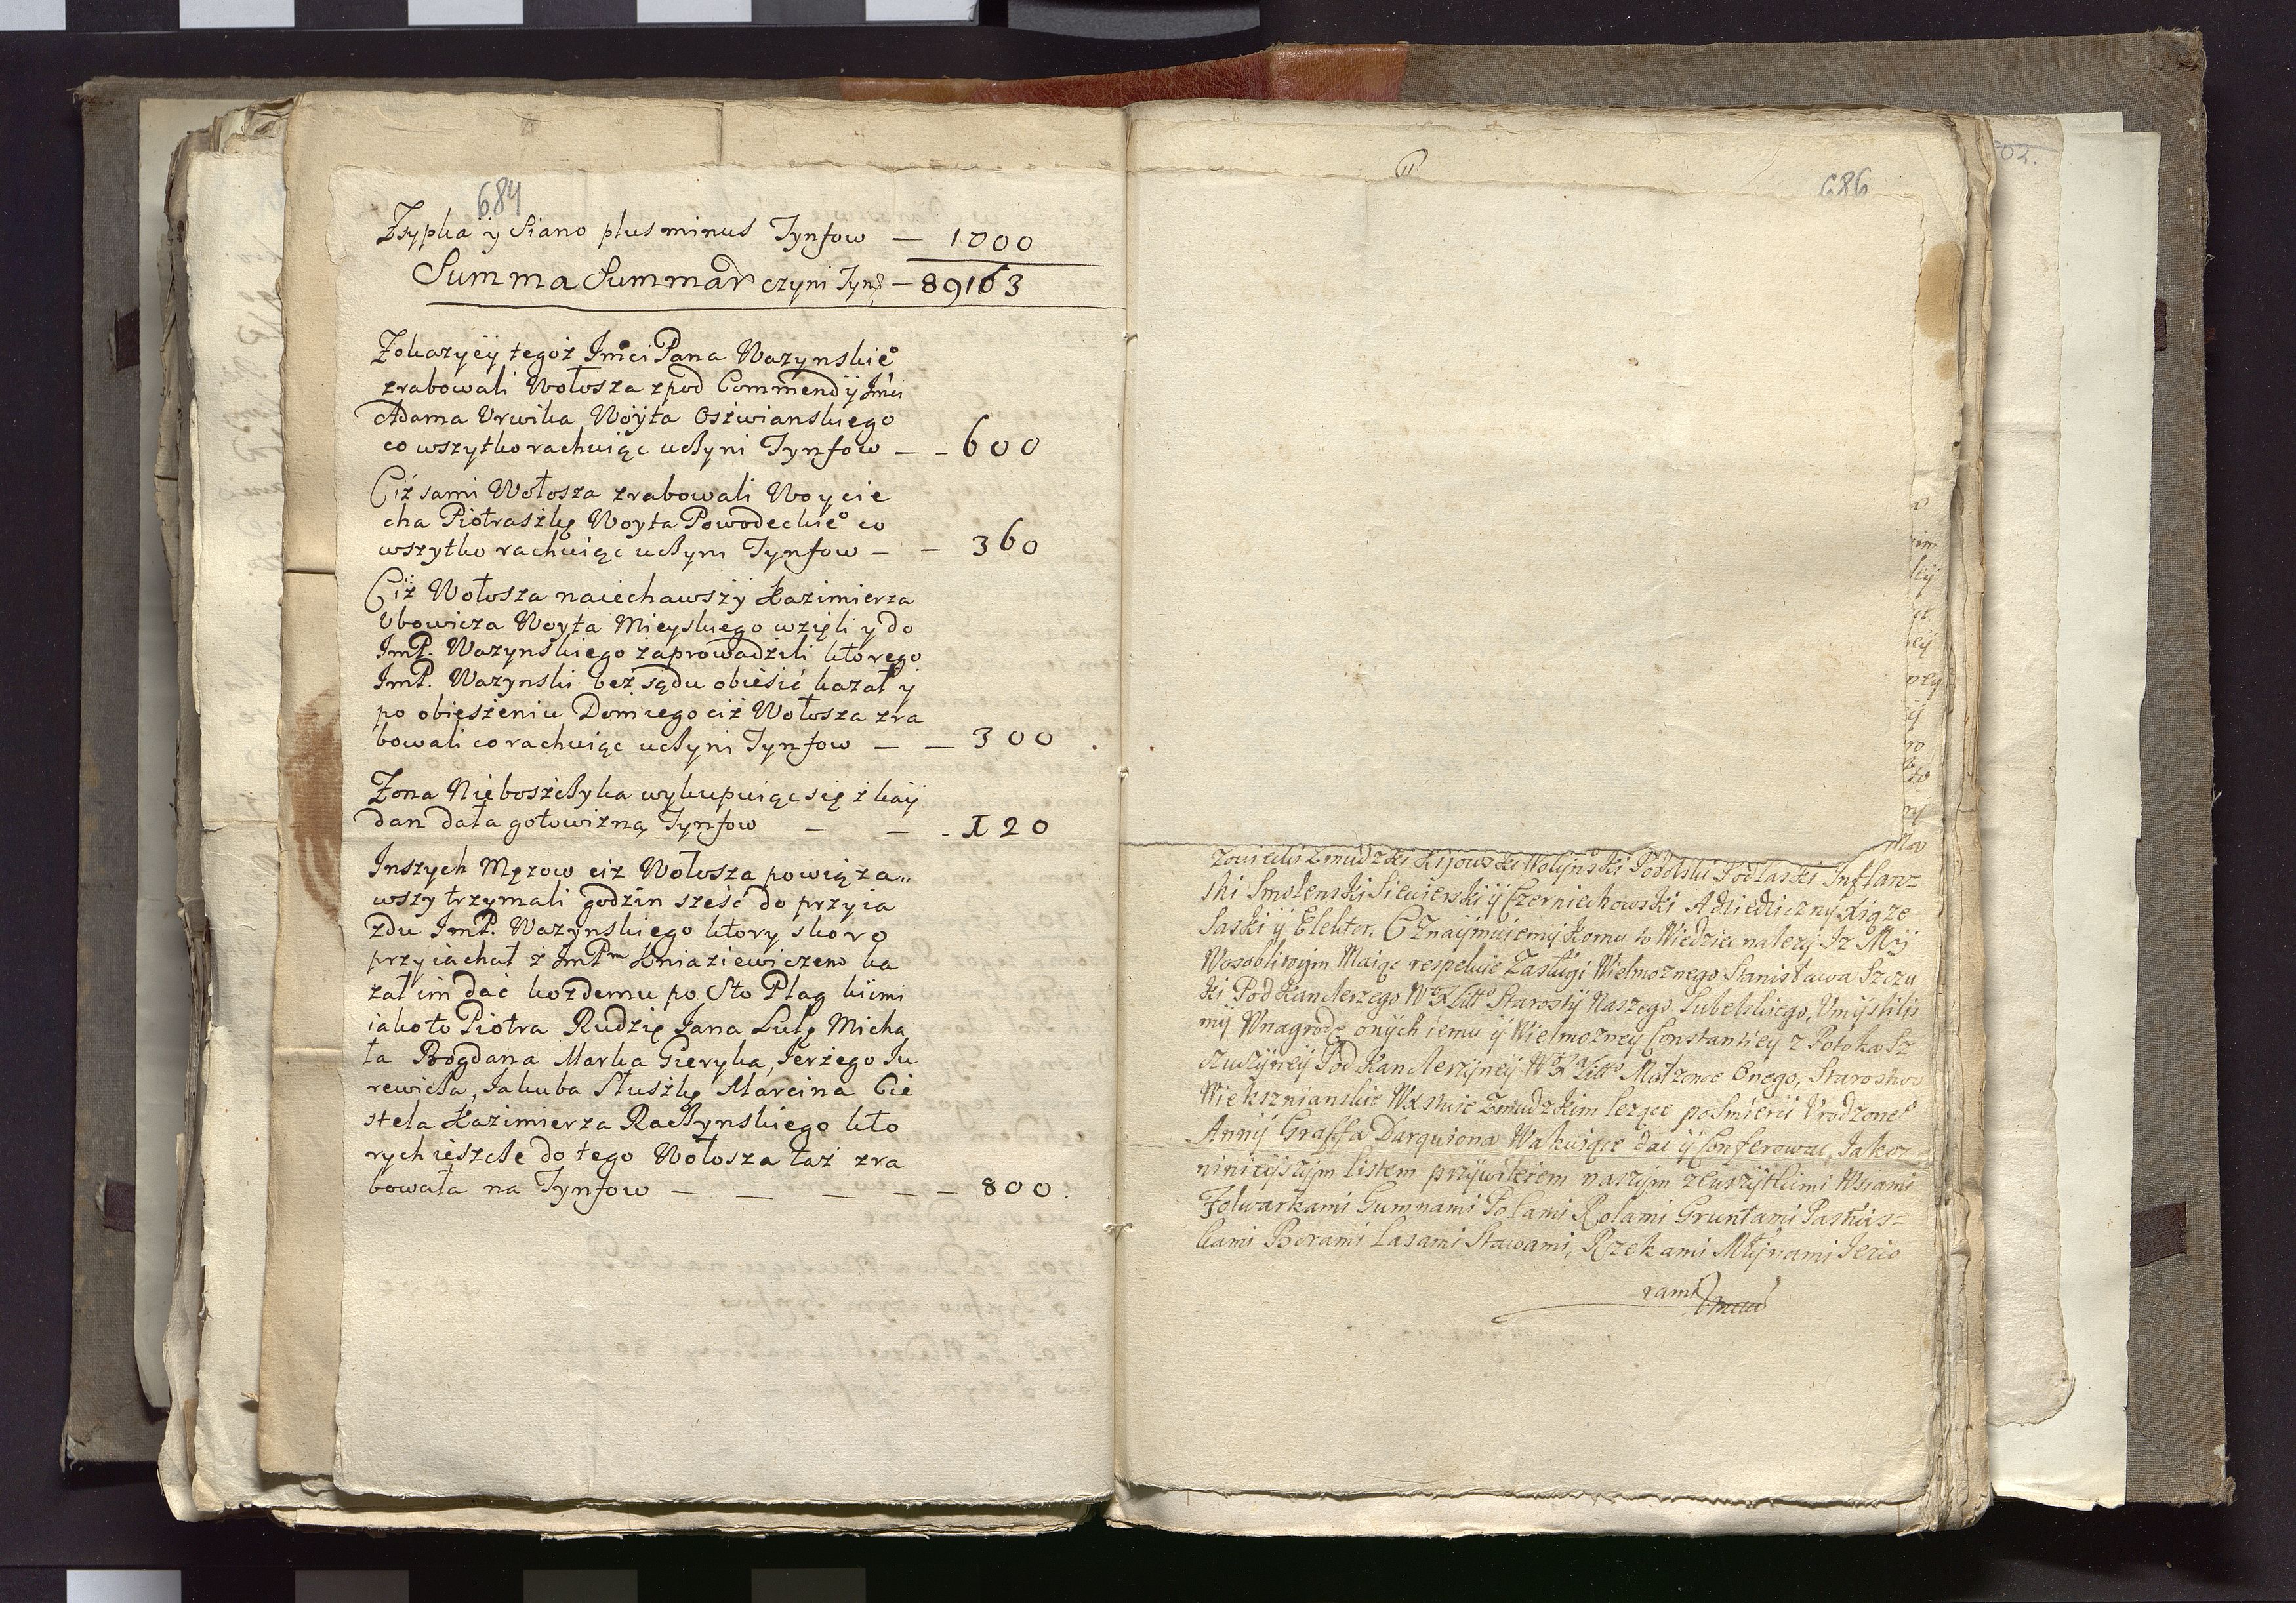 684
Zsypka ÿ Siano plus minus Tynfow — 1000
Summa Summar czyni Tynf — 89163
Zokazyeÿ tegoż Jmci Pana Wazynskie°
zrabowali Wołosza zpod Commendÿ Jmci
Adama Urwika Woÿta Ośzwianskiego
co wszytko rachuiąc uczyni Tynfow — - 600
Ciż sami Wołosza zrabowali Woycie
cha Piotraszkę Woyta Powodeckie° co
wszytko rachuiąc uczyni Tynfow — — 360
Ciż Wołosza naiechawszy Kazimierza
Ubowicza Woyta Mieyskiego wzięli y do
JmP. Wazynskiego zaprowadzili ktorego
JmP. Wazynski bez sądu obieśić kazał ÿ
po obieszeniu Dom iego ciż Wołosza zra
bowali co rachuiąc uczyni Tynfow — — 300
Zona Nieboszczyka wykupuiąc się z kaÿ
dan dała gotowizną Tynfow — — - 120
Inszych Męzow ciz Wołosza powiąza„
wszy trzymali godzin sześć do przyia
zdu JmP. Wazynskiego ktory skoro
przyiachał z JmPm Kniaziewiczem ka
zał im dać kozdemu po Sto Plag kiimi
iakoto Piotra Rudzię Jana Lulę Micha
ła Bogdana Marka Gieryka, Jerzego Ju
rewicza, Jakuba Słuszkę Marcina Cie
stela Kazimierza Raczynskiego kto
rych ieszcze do tego Wołosza taż zra
bowała na Tynfow — — — — — 800.
686
702.
zowiecki Zmudzki Kijowski Wołÿnski Podolski Podlaski Inflanz
ski Smolenski Siewierski ÿ Czerniechowski A dziedziczny Xiąże
Saski ÿ Elektor. Oznaÿmuiemÿ komu to Wiedzieć nalezÿ Iz Mÿ
Wosobliwÿm Maiąc respekcie Zasługi Wielmoznego Stanisława Szczu
ki Pod Kanclerzego W°XLitt° Starostÿ Naszego Lubelskiego, Umÿslilis
mÿ Wnagrodę onÿch iemu ÿ Wielmozneÿ Constantiey z Potoka Sz
czuczÿneÿ Pod Kanclerzÿneÿ WXLitt° Małzonce Onego, Starostwo
Wiekszniansкie WXstwie Zmudzkim lezące po Smierci Urodzone°
Annÿ Graffa Darquiona Wakuiące dać ÿ Conferować, Jakoz
ninieÿszÿm listem przÿwileiem naszÿm zewszÿtkimi Wsiami
Folwarkami Gumnami Polami Rolami Gruntami Pastwis=
kami Borami Lasami Stawami, Rzekami Młÿnami Jezio
rami